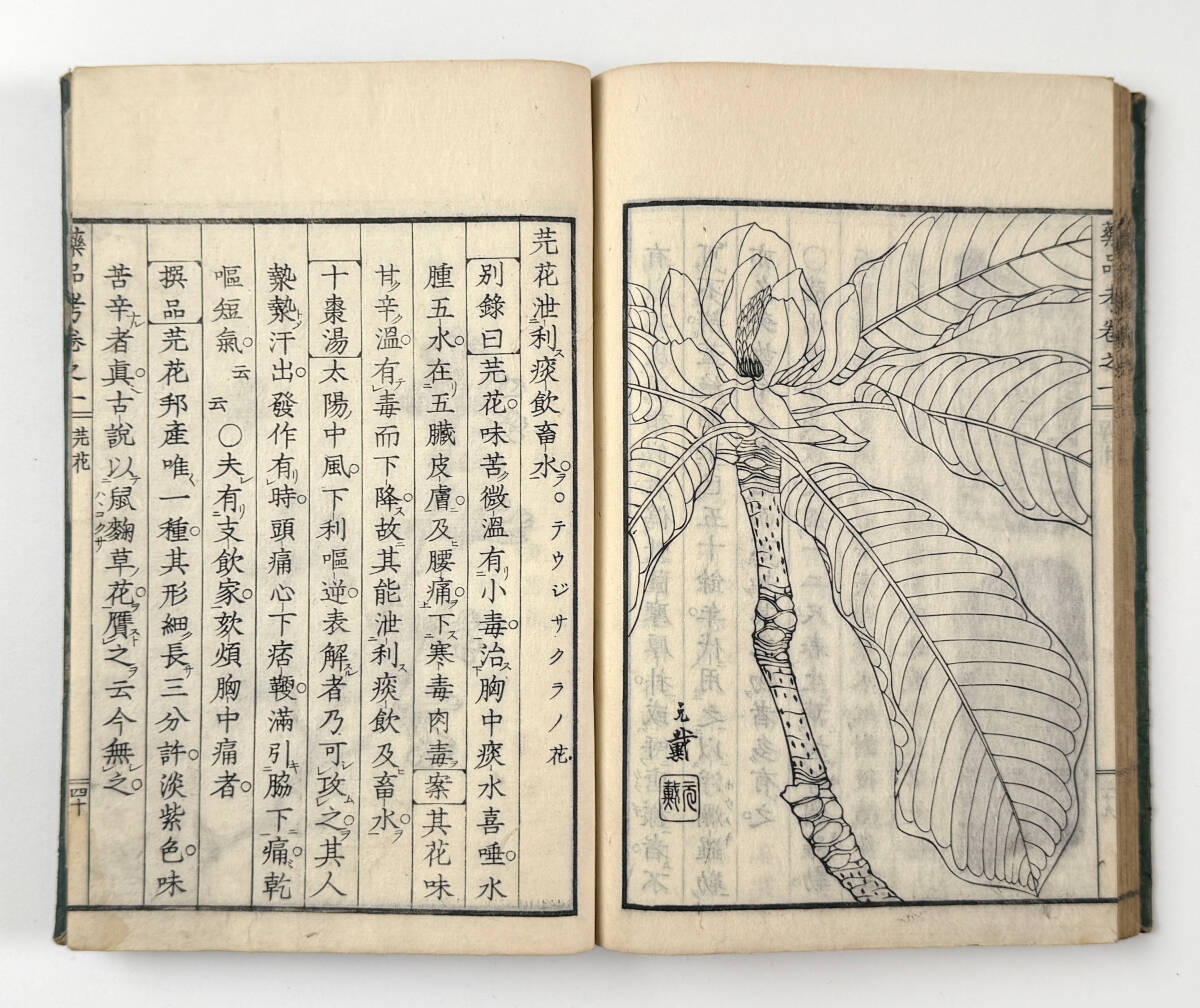 藥品考卷之一
元戴
芫花泄利痰飲畜水。○テウジサクラノ花
別錄曰芫花味苦微溫有小毒治胸中痰水喜唾水
腫五水在五臟皮膚及腰痛下寒毒肉毒案其花味
甘辛溫有毒而下降故其能泄利痰飲及畜水
十棗湯太陽中風下利嘔逆表解者乃可攻之其人
漐漐汗出發作有時頭痛心下痞鞕滿引脇下痛乾
嘔短氣云云○夫有支飲家欬煩胸中痛者
撰品芫花邦產唯一種其形細長三分許淡紫色味
苦辛者真古說以鼠麴草花贋之云今無之
藥品考卷之一
芫花
四十